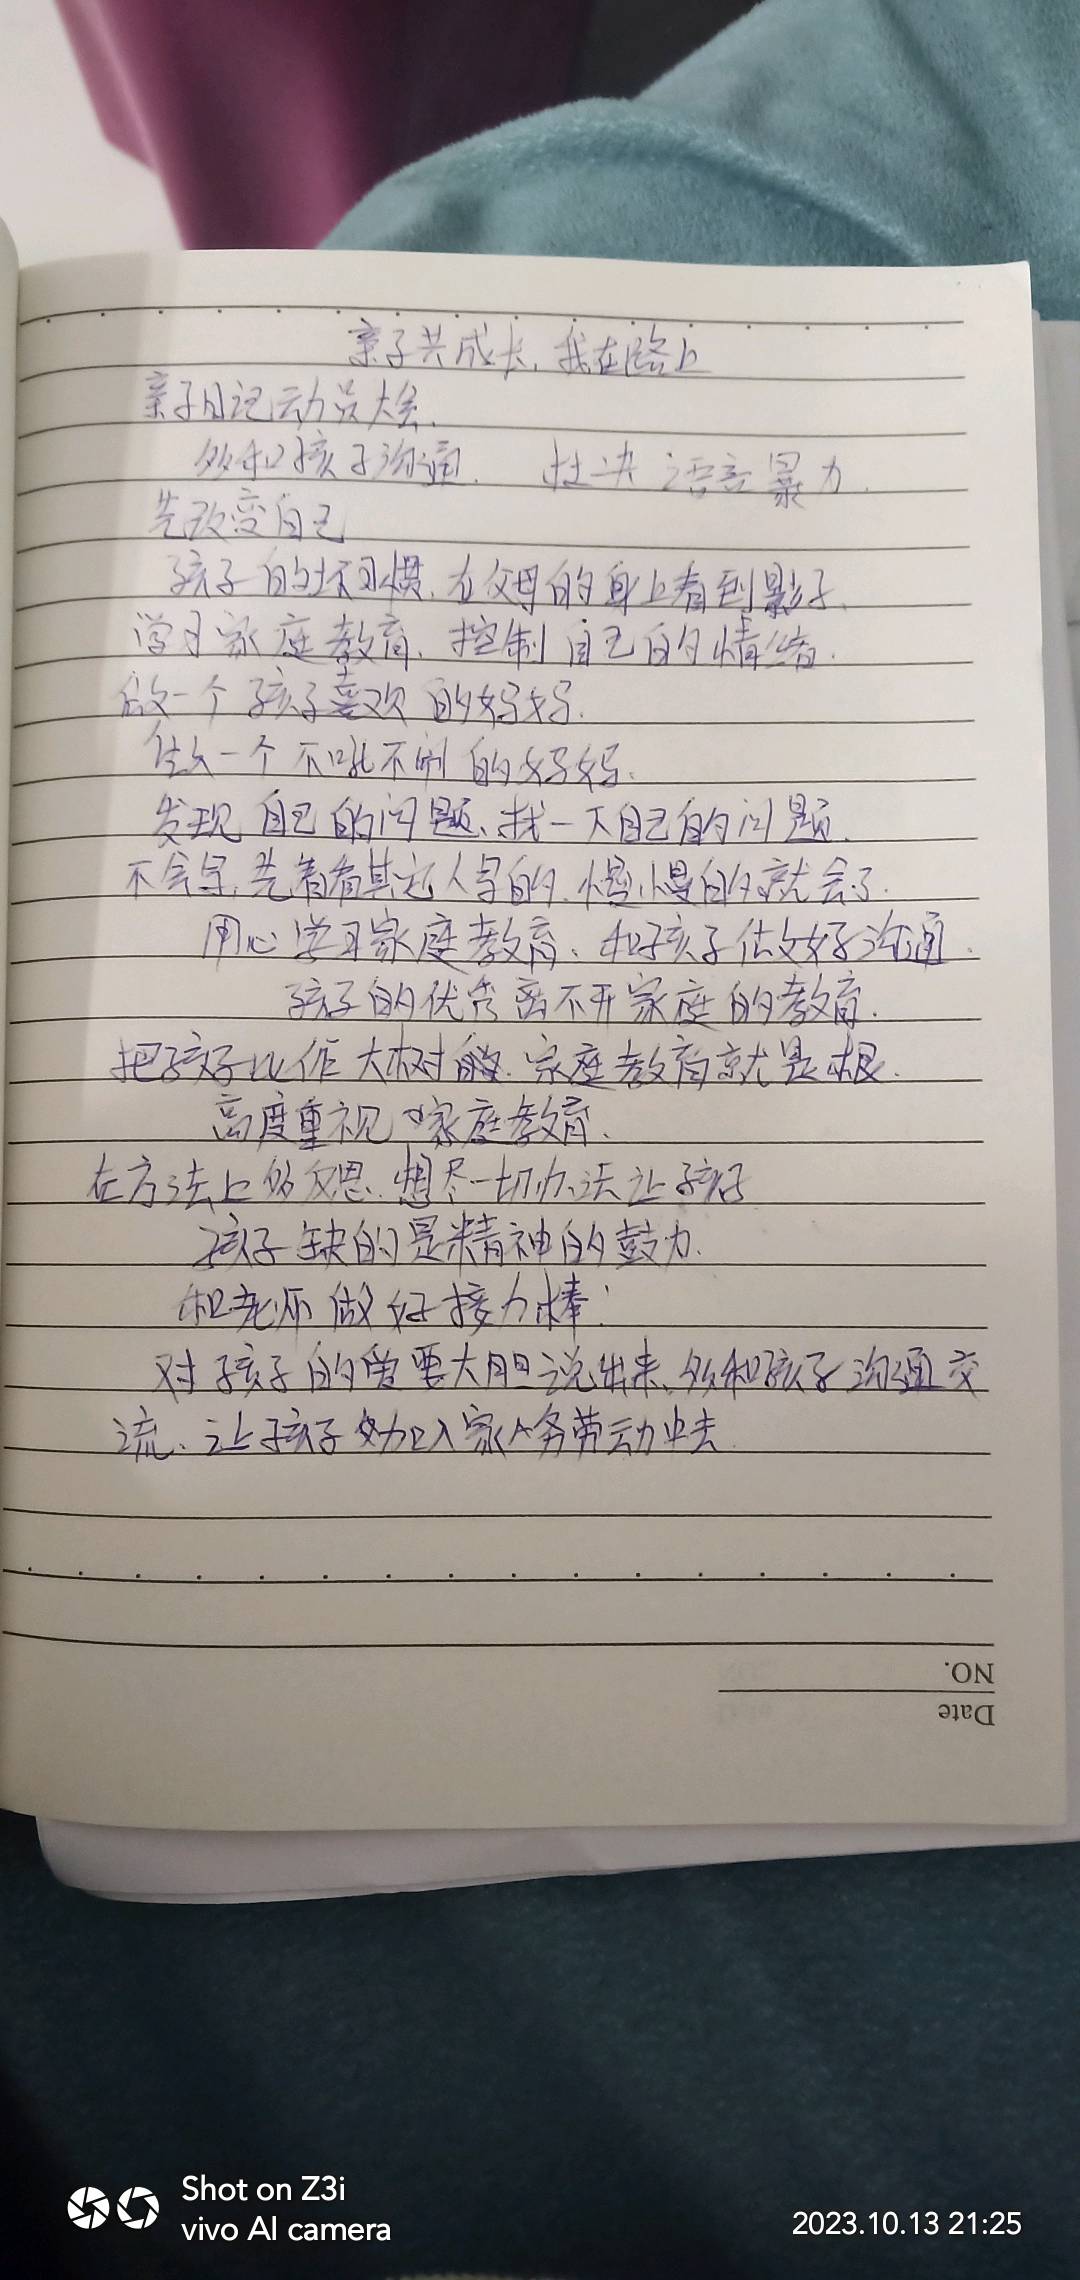 亲子共成长,我在路上
亲子日记动员大会.
多和孩子沟通. 杜决语言暴力.
先改变自己
孩子的坏习惯.在父母的身上看到影子.
学习家庭教育.控制自己的情绪.
做一个孩子喜欢的妈妈.
做一个不吼不的妈妈.
发现自己的问题、找一下自己的问题.
不会写,先看看其他人写的.慢慢的就会了.
用心学习家庭教育、和孩子做好沟通.
孩子的优秀离不开家庭的教育.
把孩子比作大树的.家庭教育就是根.
高度重视家庭教育.
在方法上的反思.想尽一切办法让孩子
孩子缺的是精神的鼓力.
和老师做好接力棒:
对孩子的爱要大胆说出来、多和孩子沟通交
流、让孩子加入家务劳动中去
NO.
Date
Shot on Z3i
vivo AI camera
2023.10.13 21:25